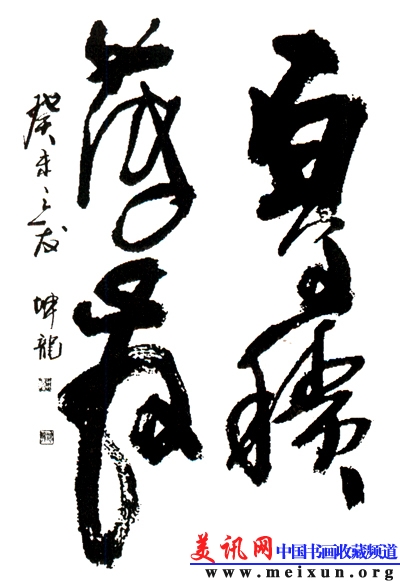 厚積
薄發
癸未之夏 坤龍
美讯网 中国书画收藏频道
www.meixun.org